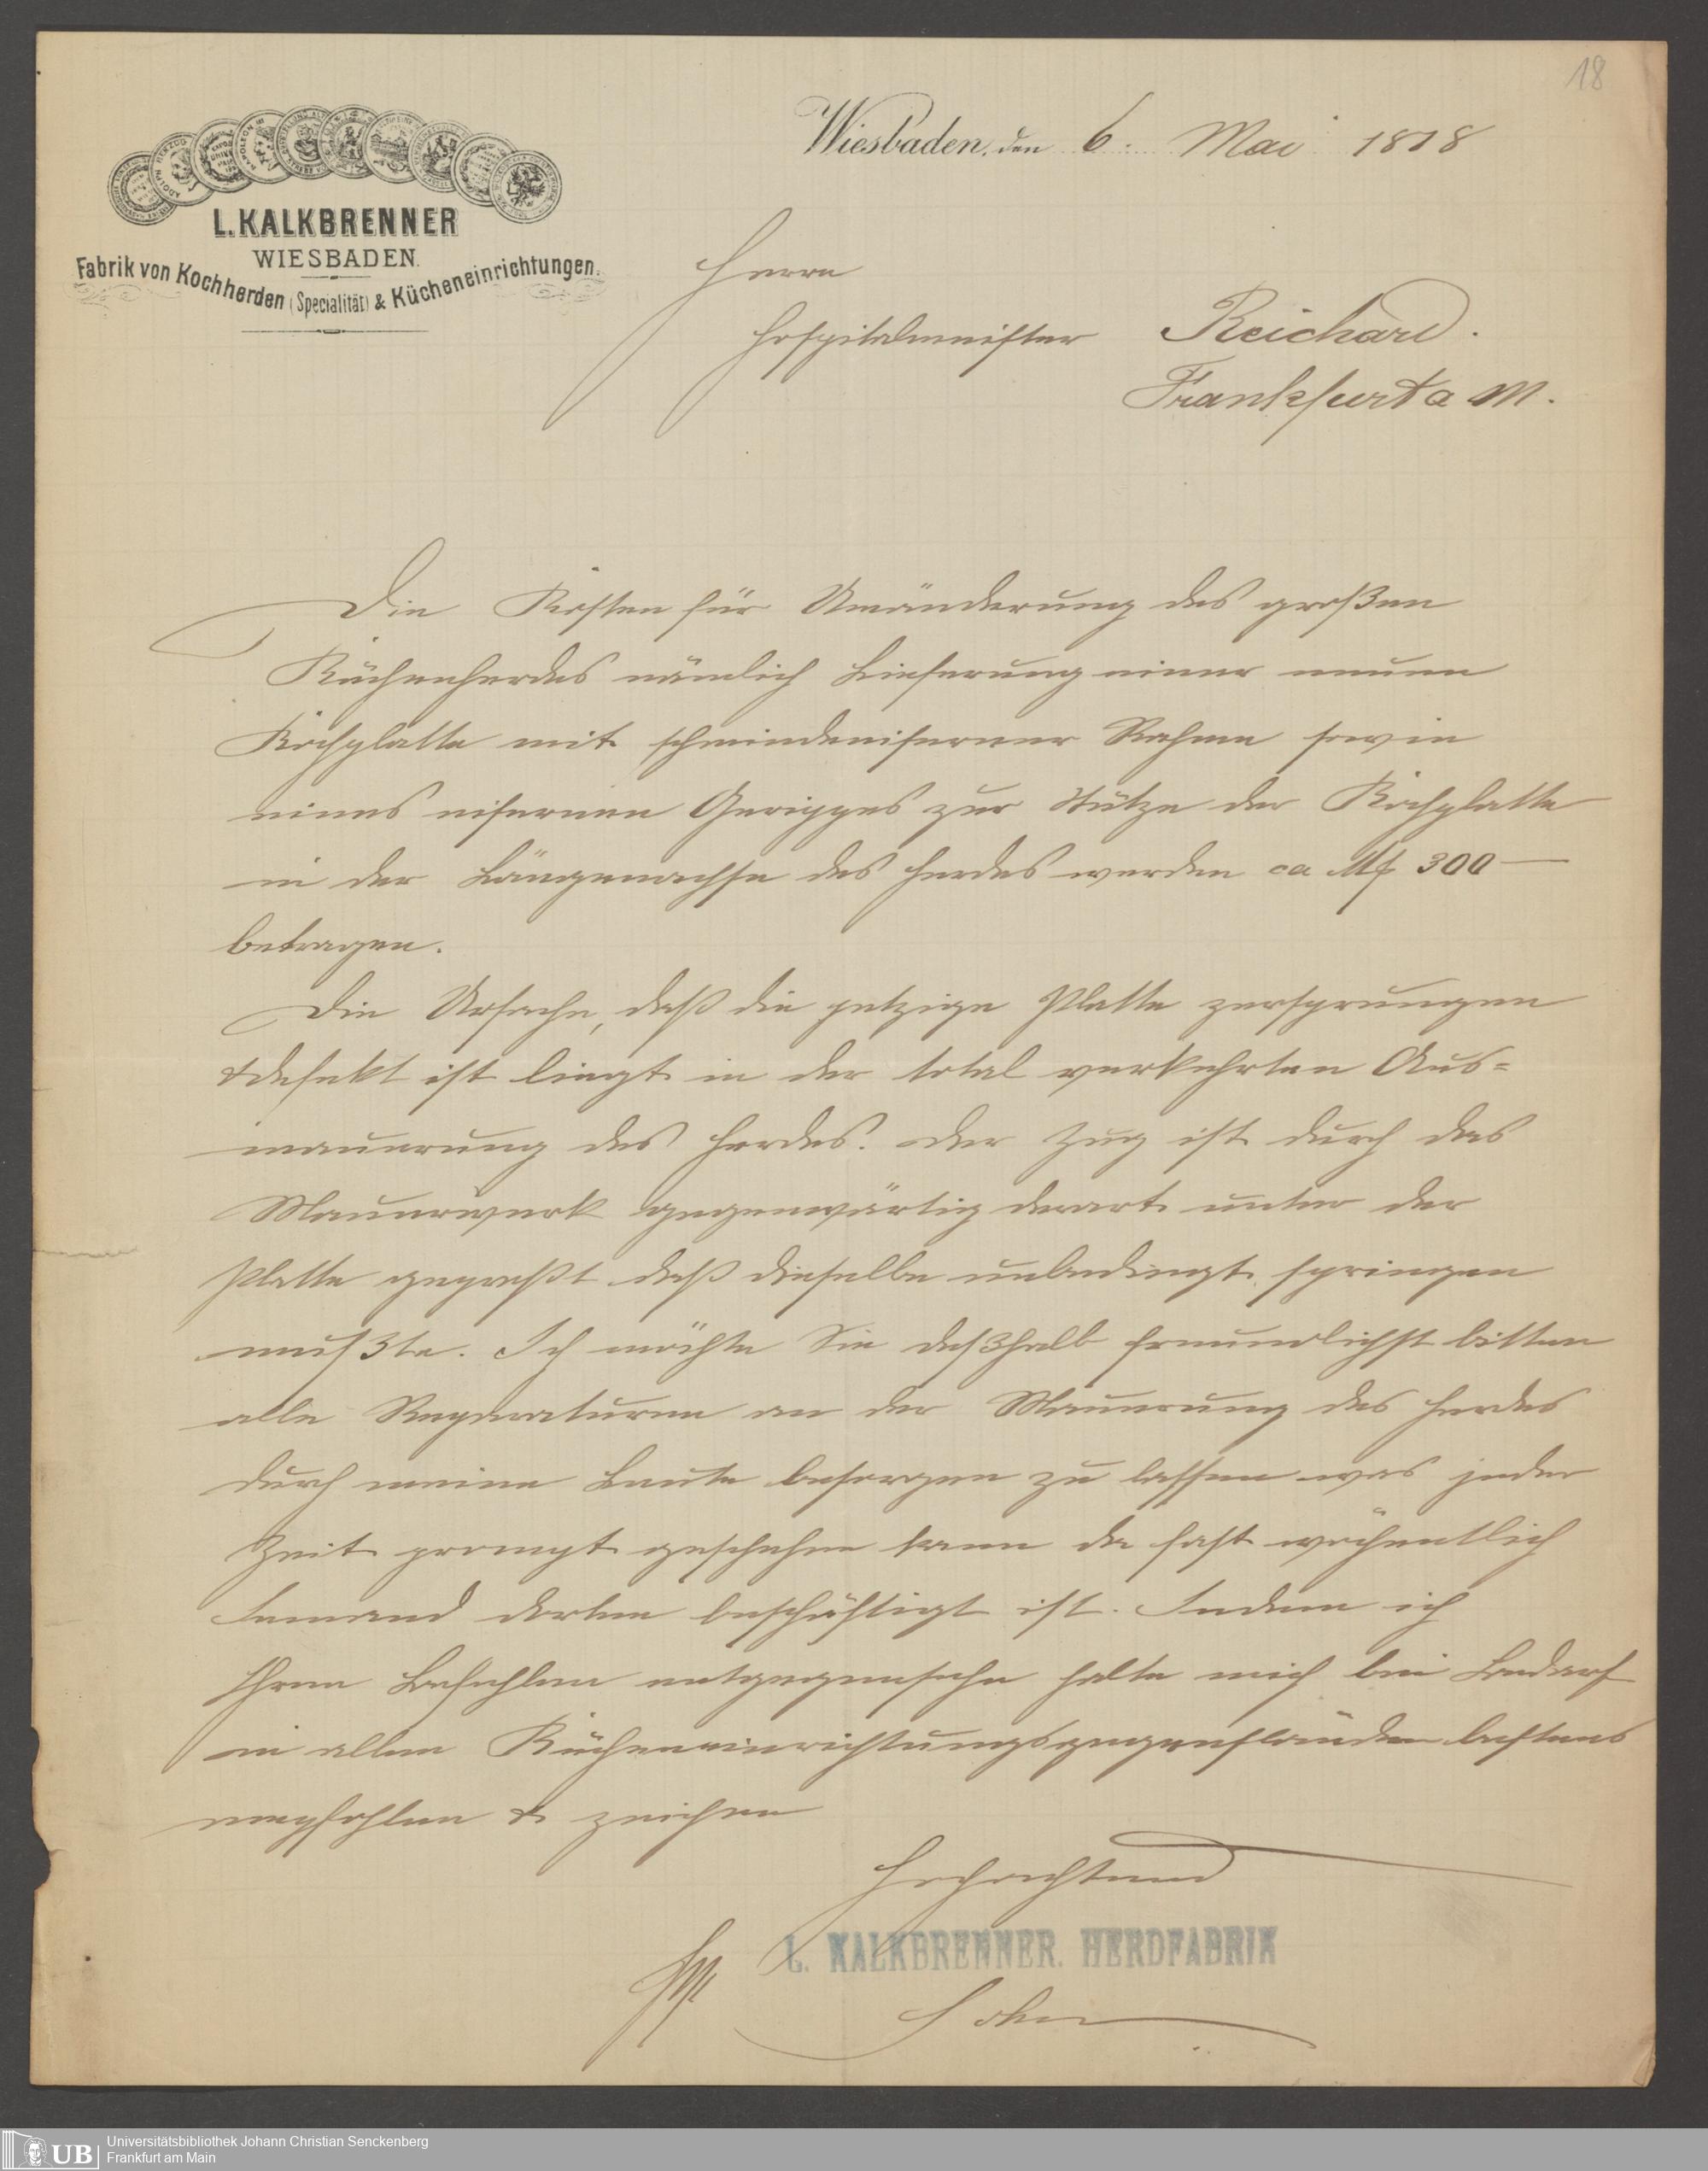 18
Wiesbaden, den 6. Mai 1878
L. KALKBRENNER
WIESBADEN.
Fabrik von Kochherden (Specialität) & Kücheneinrichtungen.
Herrn
Hospitalmeister Reichard.
Frankfurt a M.
Die Kosten für Umänderung des großen
Küchenherdes nämlich Lieferung einer neuen
Kochplatte mit schmiedeeiserner Rahme sowie
eines eisernen Gerippes zur Stütze der Kochplatte
in der Längenachse des Herdes werden ca Mk 300 —
betragen.
Die Ursache, daß die jetzige Platte zersprungen
& defekt ist liegt in der total verkehrten Aus=
mauerung des Herdes. Der Zug ist durch das
Mauerwerk gegenwärtig derart unter der
Platte gepreßt daß dieselbe unbedingt springen
mußte. Ich möchte Sie deßhalb freundlichst bitten
alle Reparaturen an der Mauerung des Herdes
durch meine Leute besorgen zu lassen was jeder
Zeit prompt geschehen kann da fast wöchentlich
Jemand dorten beschäftigt ist. Indem ich
Ihren Befehlen entgegensehe halte mich bei Bedarf
in allen Kücheneinrichtungsgegenständen bestens
empfohlen & zeichne
Hochachtend
L. KALKBRENNER. HERDFABRIK
Universitätsbibliothek Johann Christian Senckenberg
Frankfurt am Main
UB